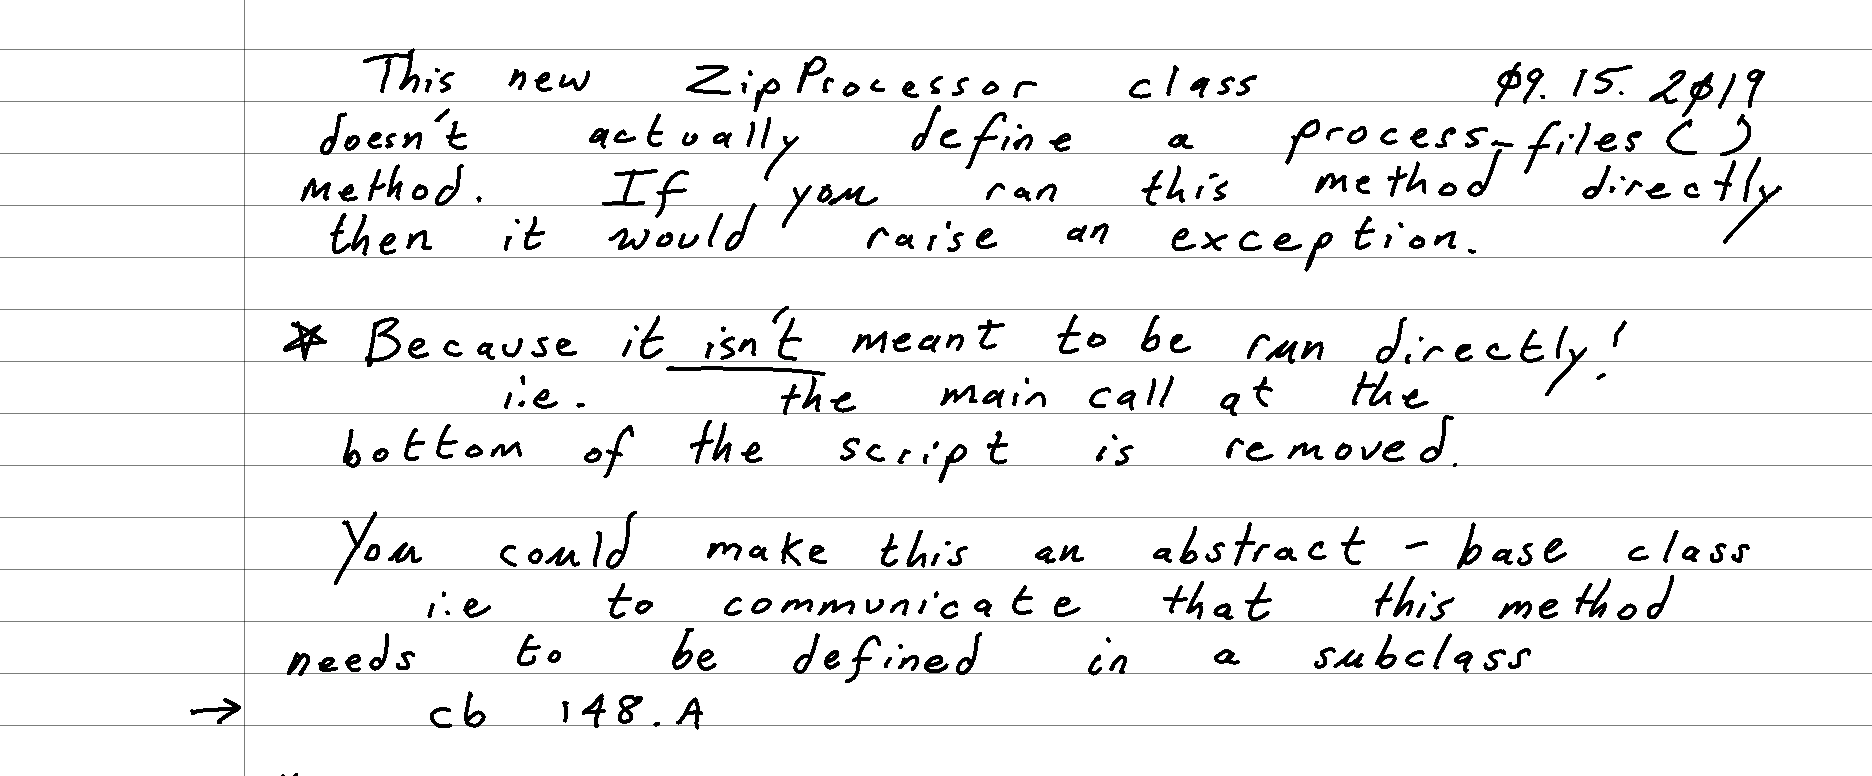 This new ZipProcessor class 09.15.2019
doesn't actually define a process_files()
method. If you ran this method directly
then it would raise an exception.
* Because it isn't meant to be run directly!
i.e. the main call at the
bottom of the script is removed.
You could make this an abstract-base class
i.e to communicate that this method
needs to be defined in a subclass
→ cb 148.A